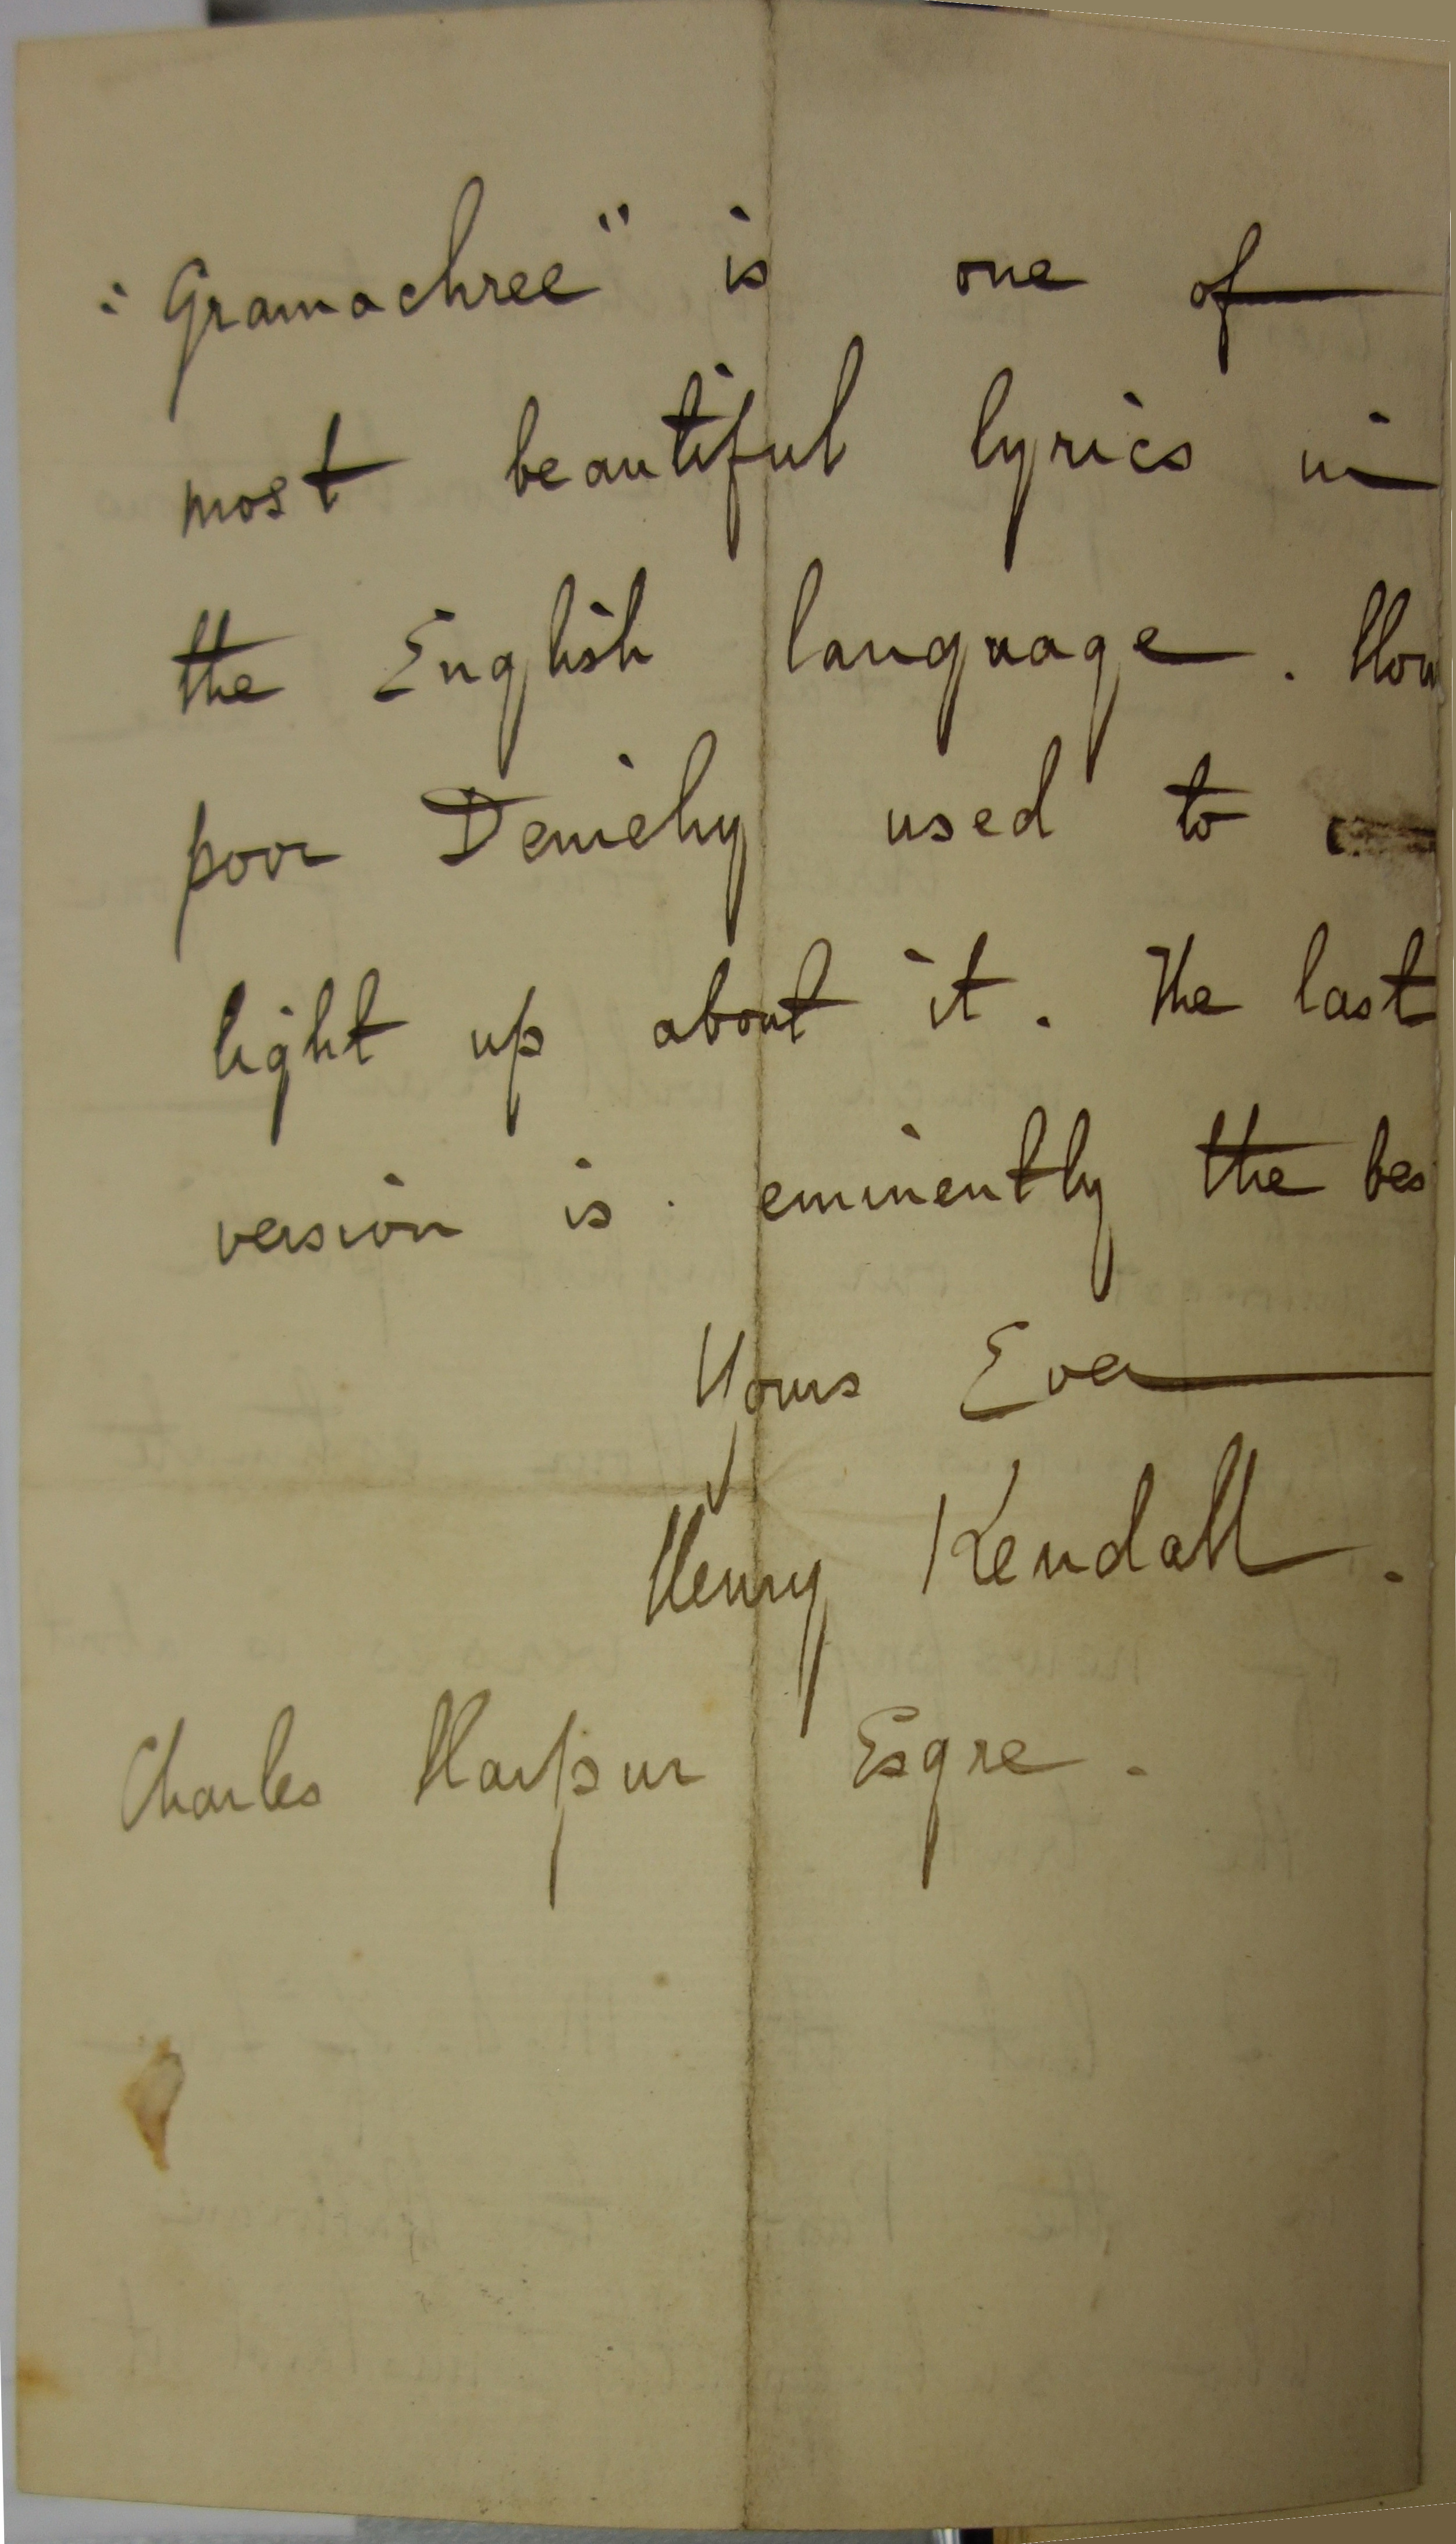 "Gramachree" is one of
most beautiful lyrics in
the English language. How
poor Deniehy used to
light up about it. The last
version is eminently the bes
Yours Ever
Henry Kendall.
Charles Harpur Esqre.